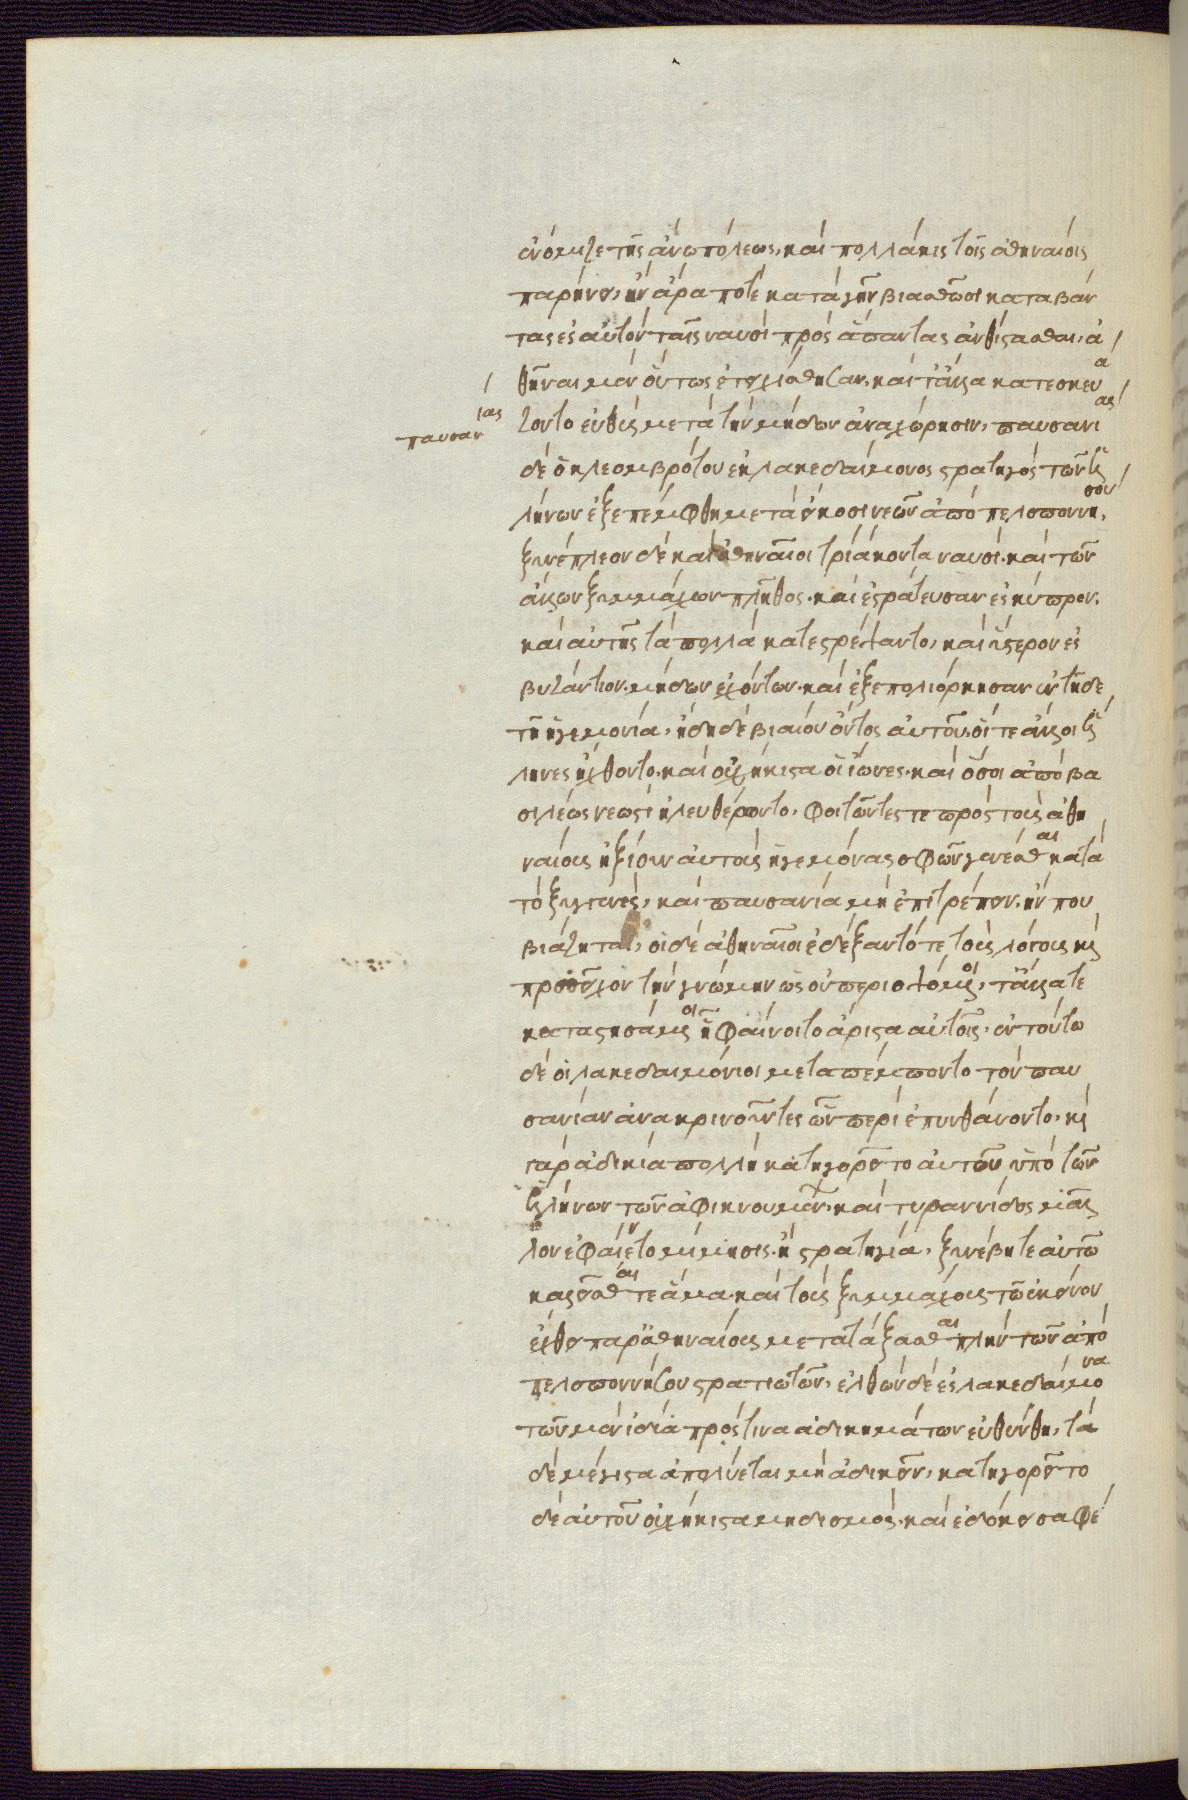 ἐνόμιζε τῆς ἄνω πόλεως. καὶ πολλάκις τοῖς ἀθηναίοις
παρήνει, ἢν ἄρα ποτὲ κατὰ γῆν βιασθῶσι καταβάν
τας ἐς αὐτὸν ταῖς ναυσὶ πρὸς ἅπαντας ἀνθίστασθαι. ἀ
θηναῖοι μὲν οὕτως ἐτειχίσθησαν. καὶ τἄλλα κατεσκευά
παυσανίας
ζοντο εὐθὺς μετὰ τὴν μήδων ἀναχώρησιν. παυσανίας
δὲ ὁ κλεομβρότου ἐκ λακεδαίμονος στρατηγὸς τῶν ἑλ
λήνων ἐξεπέμφθη μετὰ εἴκοσι νεῶν ἀπὸ πελοποννήσου.
ξυνέπλεον δὲ καὶ ἀθηναῖοι τριάκοντα ναυσί. καὶ τῶν
ἄλλων ξυμμάχων πλῆθος. καὶ ἐστράτευσαν ἐς κύπρον.
καὶ αὐτῆς τὰ πολλὰ κατεστρέψαντο, καὶ ὕστερον ἐς
βυζάντιον. μήδων ἐχόντων. καὶ ἐξεπολιόρκησαν ἐν τῇδε
τῇ ἡγεμονίᾳ. ἤδη δὲ βιαίου ὄντος αὐτοῦ, οἵ τε ἄλλοι ἕλ
ληνες ἤχθοντο. καὶ οὐχ ἥκιστα οἱ ἴωνες. καὶ ὅσοι ἀπὸ βα
σιλέως νεωστὶ ἠλευθέρωντο. φοιτῶντές τε πρὸς τοὺς ἀθη
ναίους ἠξίουν αὐτοὺς ἡγεμόνας σφῶν γενέσθαι κατὰ
τὸ ξυγγενές, καὶ παυσανίᾳ μὴ ἐπιτρέπειν. ἤν που
βιάζηται. οἱ δὲ ἀθηναῖοι ἐδέξαντό τε τοὺς λόγους καὶ
προσεῖχον τὴν γνώμην ὡς οὐ περιοψόμενοι, τἄλλά τε
καταστησόμενοι ᾗ φαίνοιτο ἄριστα αὐτοῖς. ἐν τούτῳ
δὲ οἱ λακεδαιμόνιοι μεταπέμποντο τὸν παυ
σανίαν ἀνακρινοῦντες ὧν περὶ ἐπυνθάνοντο. καὶ
γὰρ ἀδικία πολλὴ κατηγορεῖτο αὐτοῦ ὑπὸ τῶν
ἑλλήνων τῶν ἀφικνουμένων. καὶ τυραννίδος μᾶλ
λον ἐφαίνετο μίμησις. ἢ στρατηγία. ξυνέβη τε αὐτῷ
καλεῖσθαί τε ἅμα. καὶ τοὺς ξυμμάχους τῷ ἐκείνου
ἔχθει παρ᾽ ἀθηναίους μετατάξασθαι πλὴν τῶν ἀπὸ
πελοποννήσου στρατιωτῶν. ἐλθὼν δὲ ἐς λακεδαίμονα
τῶν μὲν ἰδίᾳ πρός τινα ἀδικημάτων εὐθύνθη, τὰ
δὲ μέγιστα ἀπολύεται μὴ ἀδικεῖν. κατηγορεῖτο
δὲ αὐτοῦ οὐχ ἥκιστα μηδισμός. καὶ ἐδόκει σαφέ